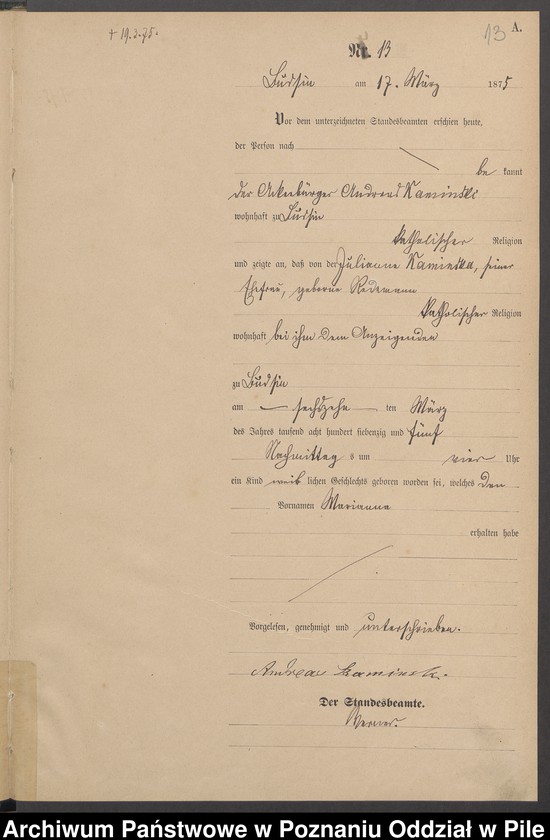 + 19.3.75.
13 A.
Nr. 13
Budsin am 17. März 1875
Vor dem unterzeichneten Standesbeamten erschien heute,
der Person nach
be kannt
der Ackerbürger Andreas Kaminski
wohnhaft zu Budsin
katholischer Religion
und zeigte an, daß von der Julianne Kaminska, seiner
Ehefrau, geborne
katholischer Religion
wohnhaft bei ihm dem Anzeigenden
zu Budsin
am sechszehn ten März
des Jahres tausend acht hundert siebenzig und fünf
Nachmittag s um vier Uhr
ein Kind weib lichen Geschlechts geboren worden sei, welches den
Vornamen Marianna
erhalten habe
Vorgelesen, genehmigt und unterschrieben.
Andreas Kaminski.
Der Standesbeamte.
Werner.
Archiwum Państwowe w Poznaniu Oddział w Pile